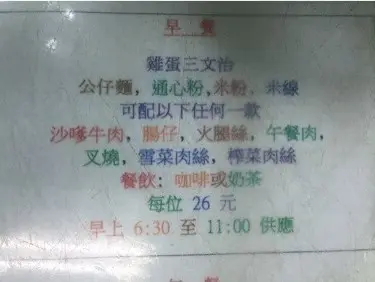 早 餐
雞蛋三文治
公仔麵, 通心粉, 米粉、米線
可配以下任何一款
沙嗲牛肉, 腸仔, 火腿絲, 午餐肉,
叉燒, 雪菜肉絲, 榨菜肉絲
餐飲: 咖啡或奶茶
每位 26 元
早上 6:30 至 11:00 供應